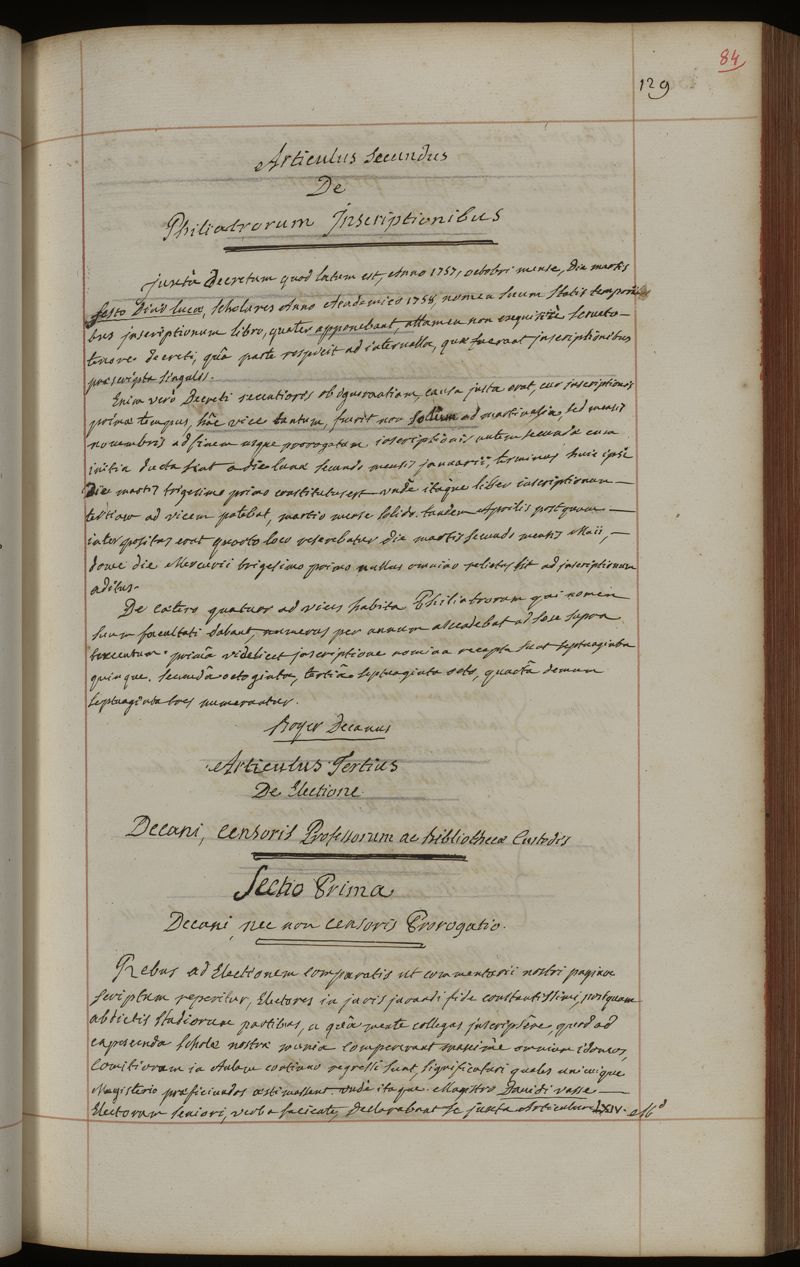 84
129
Articulus Secundus
De
Philiatrorum Inscriptionibus
juxta Decretum quod latum est, Anno 1757, octobri mense, Die martis
festo Divo lucæ, Scholares Anno Academico 1758, nomen suum statis tempori
bus inscriptionum libro, quater apponebant, attamen non exquisité servato
tenore decreti, quâ parte respicit ad intervalla, quæ fuerant inscriptionibus
præscripta singulis.
Enim verò Decreti recentioris ob ignorantiam, causa justa erat, cur inscriptionis
primæ tempus, hâc vice tantum, fuerit non solum ad martinalia, sed mensis
novembris ad finem usque prorogatum inscriptionis autem secundæ cum
initia ducta sint a die lunæ secundo mensis januarii, terminus huic ipsi
Die martis trigesimo primo constitutus est unde itaque liber inscriptionum
tertiam ad vicem patebat, martio mense solido. tandem Aprilis postquam
interpositus erat quarto loco reserebatur die martis secundo mensis Maii,
donec die Mercurii trigesimo primo nullus omnino relictus sit ad inscriptionum
aditus.
De cætero quatuor ad vices habita Philiatrorum qui nomen
suum facultati dabant, numerus per annum ascendebat ad sex supra
trecentum. primâ videlicet inscriptione nomina recepta sunt septuaginta
quinque. secundâ octoginta, tertiâ septuaginta octo, quartâ demum
septuaginta tres numerantur.
Boyer Decanus
Articulus Tertius
De Electione
Decani, Censoris Professorum ac bibliothecæ Custodis
Sectio Prima
Decani, nec non Censoris Prorogatio.
Rebus ad Electionem comparatis ut commentarii nostri paginâ
scriptum reperitur, Electores in juris jurandi fide constantissimi, postquam
abdictis studiorum partibus, eâ mente collegas inscripsêre, quod ad
capessenda scholæ nostræ munia compererant maximè omnium idoneos,
Comitiorum in Aulam continuo regressi sunt, significaturi quales unicuique
Magisterio præficiendos æstimassent. unde itaque Magistro Davidi vasse
Electorum seniori, verba faciente, declarabant se juxta Articulum LXIV.